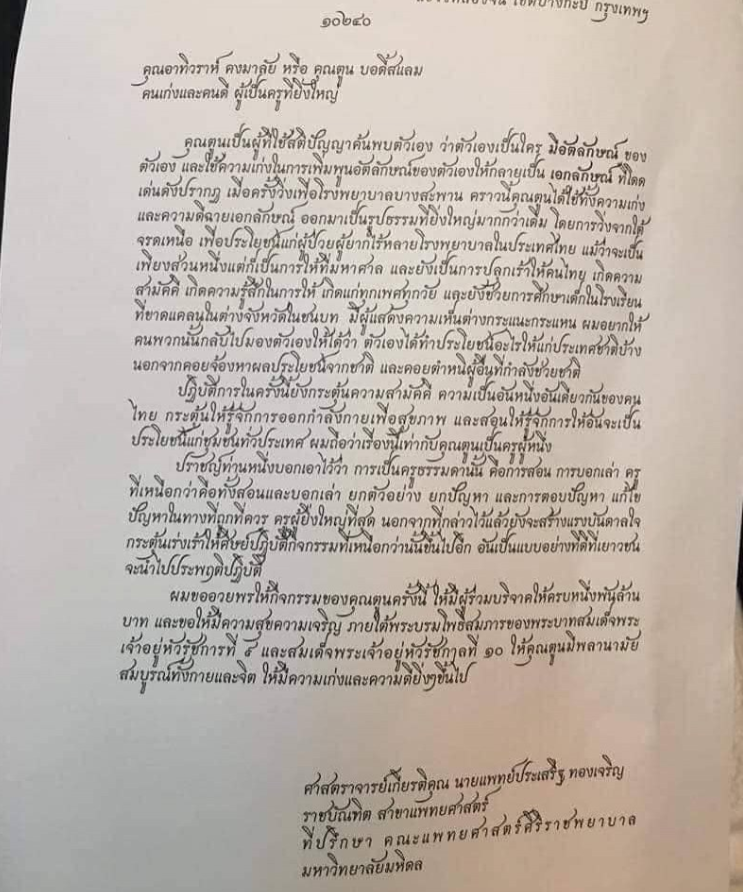 เขตบางกะปิ กรุงเทพฯ
๑๐๒๔๐
คุณอาทิวราห์ คงมาลัย หรือ คุณตูน บอดี้สแลม
คนเก่งและคนดี ผู้เป็นครูที่ยิ่งใหญ่
คุณตูนเป็นผู้ที่ใช้สติปัญญาค้นพบตัวเอง ว่าตัวเองเป็นใคร มีอัตลักษณ์ ของ
ตัวเอง และใช้ความเก่งในการเพิ่มพูนอัตลักษณ์ของตัวเองให้กลายเป็น เอกลักษณ์ ที่โดด
เด่นดังปรากฏ เมื่อครั้งวิ่งเพื่อโรงพยาบาลบางสะพาน คราวนี้คุณตูนได้ใช้ทั้งความเก่ง
และความดีฉายเอกลักษณ์ ออกมาเป็นรูปธรรมที่ยิ่งใหญ่มากกว่าเดิม โดยการวิ่งจากใต้
จรดเหนือ เพื่อประโยชน์แก่ผู้ป่วยผู้ยากไร้หลายโรงพยาบาลในประเทศไทย แม้ว่าจะเป็น
เพียงส่วนหนึ่งแต่ก็เป็นการให้ที่มหาศาล และยังเป็นการปลุกเร้าให้คนไทย เกิดความ
สามัคคี เกิดความรู้สึกในการให้ เกิดแก่ทุกเพศทุกวัย และยังช่วยการศึกษาเด็กในโรงเรียน
ที่ขาดแคลนในต่างจังหวัดในชนบท มีผู้แสดงความเห็นต่างกระแนะกระแหน ผมอยากให้
คนพวกนั้นกลับไปมองตัวเองให้ได้ว่า ตัวเองได้ทำประโยชน์อะไรให้แก่ประเทศชาติบ้าง
นอกจากคอยจ้องหาผลประโยชน์จากชาติ และคอยตำหนิผู้อื่นที่กำลังช่วยชาติ
ปฏิบัติการในครั้งนี้ยังกระตุ้นความสามัคคี ความเป็นอันหนึ่งอันเดียวกันของคน
ไทย กระตุ้นให้รู้จักการออกกำลังกายเพื่อสุขภาพ และสอนให้รู้จักการให้อันจะเป็น
ประโยชน์แก่ชุมชนทั่วประเทศ ผมถือว่าเรื่องนี้เท่ากับคุณตูนเป็นครูผู้หนึ่ง
ปราชญ์ท่านหนึ่งบอกเอาไว้ว่า การเป็นครูธรรมดานั้น คือการสอน การบอกเล่า ครู
ที่เหนือกว่าคือทั้งสอนและบอกเล่า ยกตัวอย่าง ยกปัญหา และการตอบปัญหา แก้ไข
ปัญหาในทางที่ถูกที่ควร ครูผู้ยิ่งใหญ่ที่สุด นอกจากที่กล่าวไว้แล้วยังจะสร้างแรงบันดาลใจ
กระตุ้นเร่งเร้าให้ศิษย์ปฏิบัติกิจกรรมที่เหนือกว่านั้นขึ้นไปอีก อันเป็นแบบอย่างที่ดีที่เยาวชน
จะนำไปประพฤติปฏิบัติ
ผมขออวยพรให้กิจกรรมของคุณตูนครั้งนี้ ให้มีผู้ร่วมบริจาคให้ครบหนึ่งพันล้าน
บาท และขอให้มีความสุขความเจริญ ภายใต้พระบรมโพธิสมภารของพระบาทสมเด็จพระ
เจ้าอยู่หัวรัชการที่ ๙ และสมเด็จพระเจ้าอยู่หัวรัชกาลที่ ๑๐ ให้คุณตูนมีพลานามัย
สมบูรณ์ทั้งกายและจิต ให้มีความเก่งและความดียิ่งๆขึ้นไป
ศาสตราจารย์เกียรติคุณ นายแพทย์ประเสริฐ ทองเจริญ
ราชบัณฑิต สาขาแพทยศาสตร์
ที่ปรึกษา คณะแพทยศาสตร์ศิริราชพยาบาล
มหาวิทยาลัยมหิดล